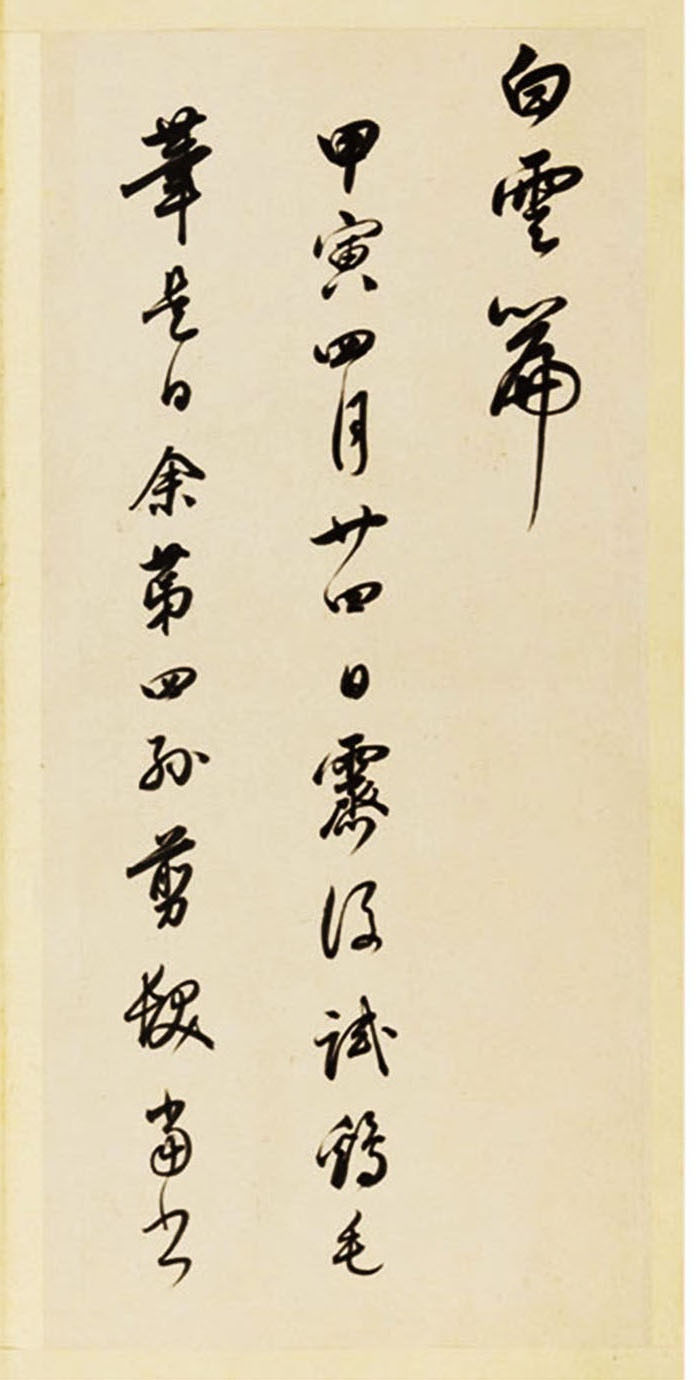 白雲篇
甲寅四月廿四日霽後試鷄毛
筆是日余第四孫剪髮當書